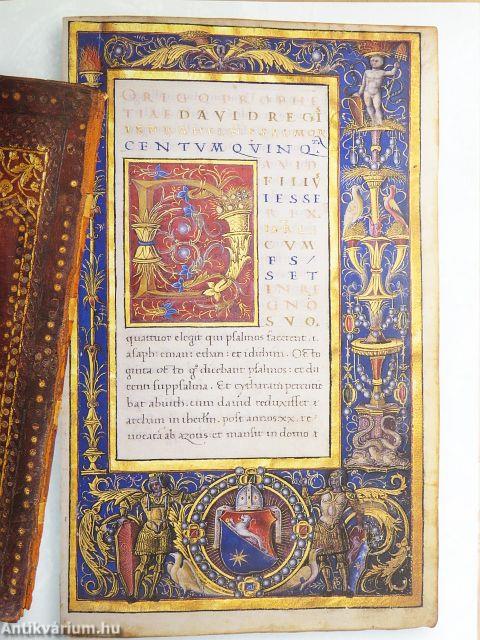 ORIGO PROPHE
TIAE DAVID REGI
CENTVM QVINQ TA
AVID
FILIV
IESSE
REX.
CVM
ES/
SET
IN RE
GNO
SVO.
quattuor elegit qui psalmos facerent. i
asaph: eman: ethan: et idithun. Octo
ginta octo go dicebant psalmos: et du
centi suppsalma. Et cytharam percutie
bat abiuth. cum david reduxisset a
archum in iherlm. post annos xx. re
vocata ab azotis et mansit in domo a
Antikvárium.hu